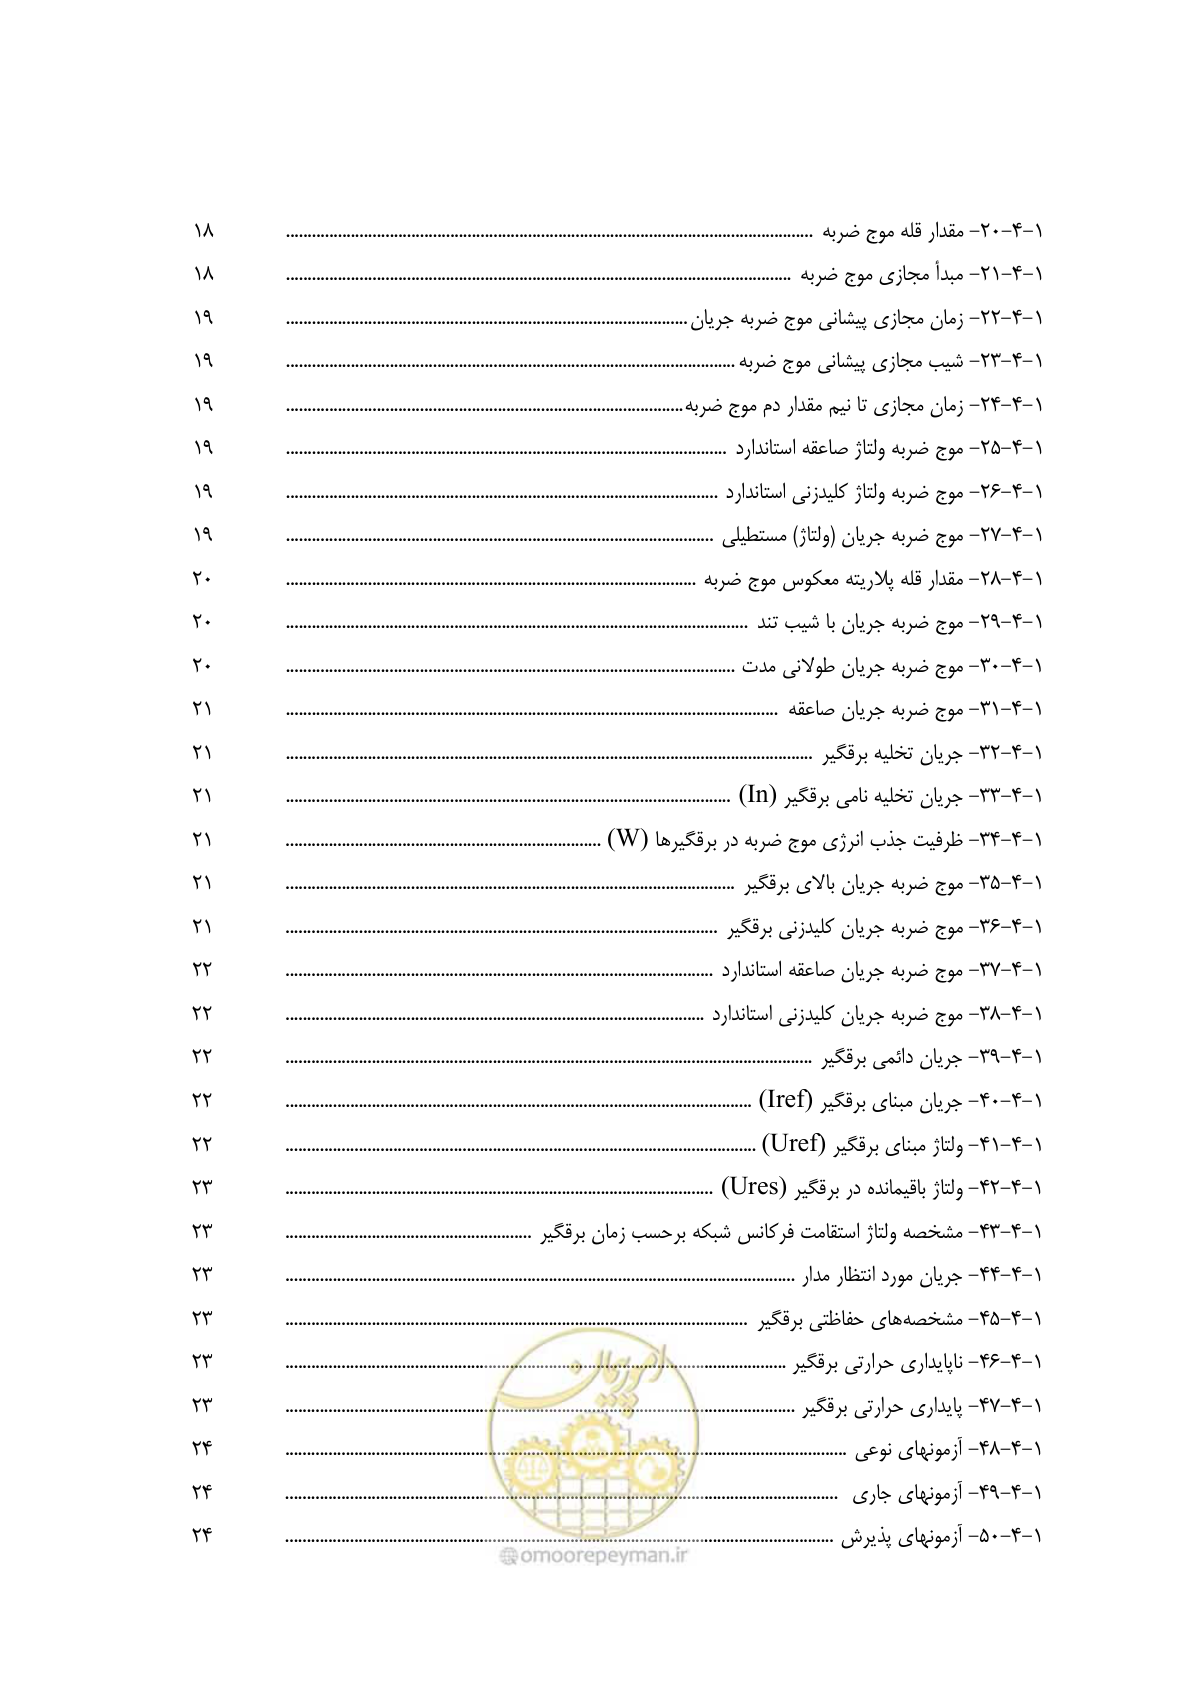 ۱-۴-۲۰- مقدار قله موج ضربه ........ ۱۸
۱-۴-۲۱- مبدأ مجازی موج ضربه ........ ۱۸
۱-۴-۲۲- زمان مجازی پیشانی موج ضربه جریان ........ ۱۹
۱-۴-۲۳- شیب مجازی پیشانی موج ضربه ........ ۱۹
۱-۴-۲۴- زمان مجازی تا نیم مقدار دم موج ضربه ........ ۱۹
۱-۴-۲۵- موج ضربه ولتاژ صاعقه استاندارد ........ ۱۹
۱-۴-۲۶- موج ضربه ولتاژ کلیدزنی استاندارد ........ ۱۹
۱-۴-۲۷- موج ضربه جریان (ولتاژ) مستطیلی ........ ۱۹
۱-۴-۲۸- مقدار قله پلاریته معکوس موج ضربه ........ ۲۰
۱-۴-۲۹- موج ضربه جریان با شیب تند ........ ۲۰
۱-۴-۳۰- موج ضربه جریان طولانی مدت ........ ۲۰
۱-۴-۳۱- موج ضربه جریان صاعقه ........ ۲۱
۱-۴-۳۲- جریان تخلیه برقگیر ........ ۲۱
۱-۴-۳۳- جریان تخلیه نامی برقگیر (In) ........ ۲۱
۱-۴-۳۴- ظرفیت جذب انرژی موج ضربه در برقگیرها (W) ........ ۲۱
۱-۴-۳۵- موج ضربه جریان بالای برقگیر ........ ۲۱
۱-۴-۳۶- موج ضربه جریان کلیدزنی برقگیر ........ ۲۱
۱-۴-۳۷- موج ضربه جریان صاعقه استاندارد ........ ۲۲
۱-۴-۳۸- موج ضربه جریان کلیدزنی استاندارد ........ ۲۲
۱-۴-۳۹- جریان دائمی برقگیر ........ ۲۲
۱-۴-۴۰- جریان مبنای برقگیر (Iref) ........ ۲۲
۱-۴-۴۱- ولتاژ مبنای برقگیر (Uref) ........ ۲۲
۱-۴-۴۲- ولتاژ باقیمانده در برقگیر (Ures) ........ ۲۳
۱-۴-۴۳- مشخصه ولتاژ استقامت فرکانس شبکه برحسب زمان برقگیر ........ ۲۳
۱-۴-۴۴- جریان مورد انتظار مدار ........ ۲۳
۱-۴-۴۵- مشخصه‌های حفاظتی برقگیر ........ ۲۳
۱-۴-۴۶- ناپایداری حرارتی برقگیر ........ ۲۳
۱-۴-۴۷- پایداری حرارتی برقگیر ........ ۲۳
۱-۴-۴۸- آزمونهای نوعی ........ ۲۴
۱-۴-۴۹- آزمونهای جاری ........ ۲۴
۱-۴-۵۰- آزمونهای پذیرش ........ ۲۴
امور پیمان
@omoorepeyman.ir